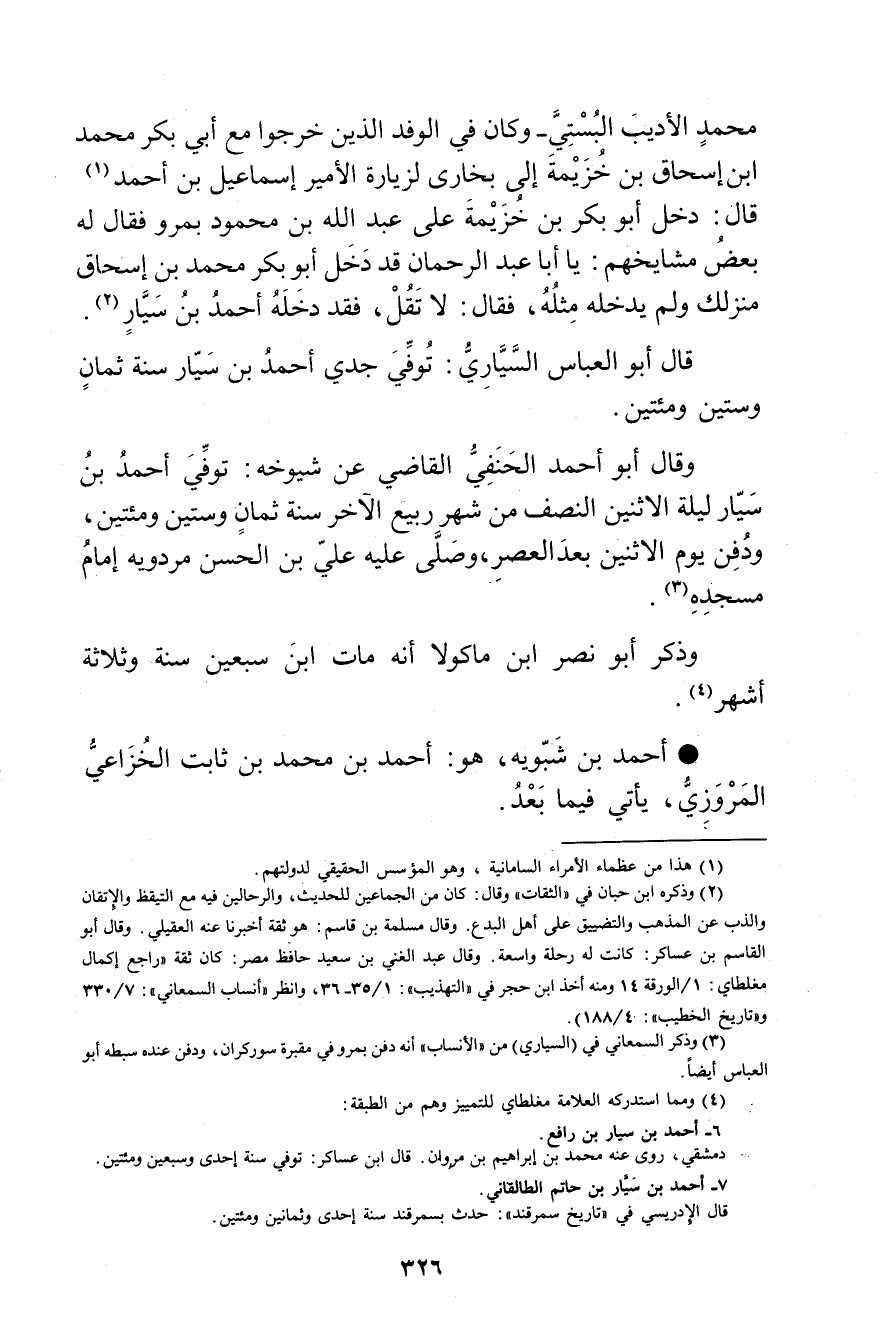 محمدٍ الأديبَ البُسْتِيَّ ـ وكان في الوفد الذين خرجوا مع أبي بكر محمد
ابن إسحاق بن خُزَيْمةَ إلى بخارى لزيارة الأمير إسماعيل بن أحمد (١)
قال: دخل أبو بكر بن خُزَيْمةَ على عبد الله بن محمود بمرو فقال له
بعضُ مشايخهم: يا أبا عبد الرحمان قد دَخَل أبو بكر محمد بن إسحاق
منزلك ولم يدخله مِثلُهُ، فقال: لا تَقُلْ، فقد دخَلَهُ أحمدُ بنُ سَيَّارٍ (٢).
قال أبو العباس السَّيَّارِيُّ: تُوفِّيَ جدي أحمدُ بن سَيّار سنة ثمانٍ
وستين ومئتين.
وقال أبو أحمد الحَنَفِيُّ القاضي عن شيوخه: توفِّيَ أحمدُ بنُ
سَيّار ليلة الاثنين النصف من شهر ربيع الآخر سنة ثمانٍ وستين ومئتين،
ودُفِن يوم الاثنين بعدَ العصرِ، وصَلَّى عليه عليّ بن الحسن مردويه إمامُ
مسجدِهِ (٣).
وذكر أبو نصر ابن ماكولا أنه مات ابنَ سبعين سنة وثلاثة
أشهر (٤).
● أحمد بن شَبّويه، هو: أحمد بن محمد بن ثابت الخُزَاعيُّ
المَرْوَزِيُّ، يأتي فيما بَعْدُ.
(١) هذا من عظماء الأمراء السامانية ، وهو المؤسس الحقيقي لدولتهم.
(٢) وذكره ابن حبان في «الثقات» وقال: كان من الجماعين للحديث، والرحالين فيه مع التيقظ والإتقان
والذب عن المذهب والتضييق على أهل البدع. وقال مسلمة بن قاسم: هو ثقة أخبرنا عنه العقيلي. وقال أبو
القاسم بن عساكر: كانت له رحلة واسعة. وقال عبد الغني بن سعيد حافظ مصر: كان ثقة «راجع إكمال
مغلطاي: ١/الورقة ١٤ ومنه أخذ ابن حجر في «التهذيب»: ١/٣٥ـ ٣٦، وانظر «أنساب السمعاني»: ٧/ ٣٣٠
و«تاريخ الخطيب»: ٤/ ١٨٨).
(٣) وذكر السمعاني في (السياري) من «الأنساب» أنه دفن بمرو في مقبرة سوركران، ودفن عنده سبطه أبو
العباس أيضاً.
(٤) ومما استدركه العلامة مغلطاي للتمييز وهم من الطبقة:
٦ـ أحمد بن سيار بن رافع.
دمشقي، روى عنه محمد بن إبراهيم بن مروان. قال ابن عساكر: توفي سنة إحدى وسبعين ومئتين.
٧ـ أحمد بن سَيَّار بن حاتم الطالقاني.
قال الإدريسي في «تاريخ سمرقند»: حدث بسمرقند سنة إحدى وثمانين ومئتين.
٣٢٦